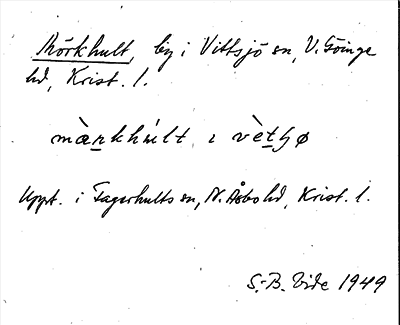 Mörkhult, by i Vittsjö sn, V. Göinge
hd, Krist. l.
mὰrkhùlt ı vètʒø
Uppt. i Fagerhults sn, N. Åsbo hd, Krist. l.
S.-B. Vide 1949